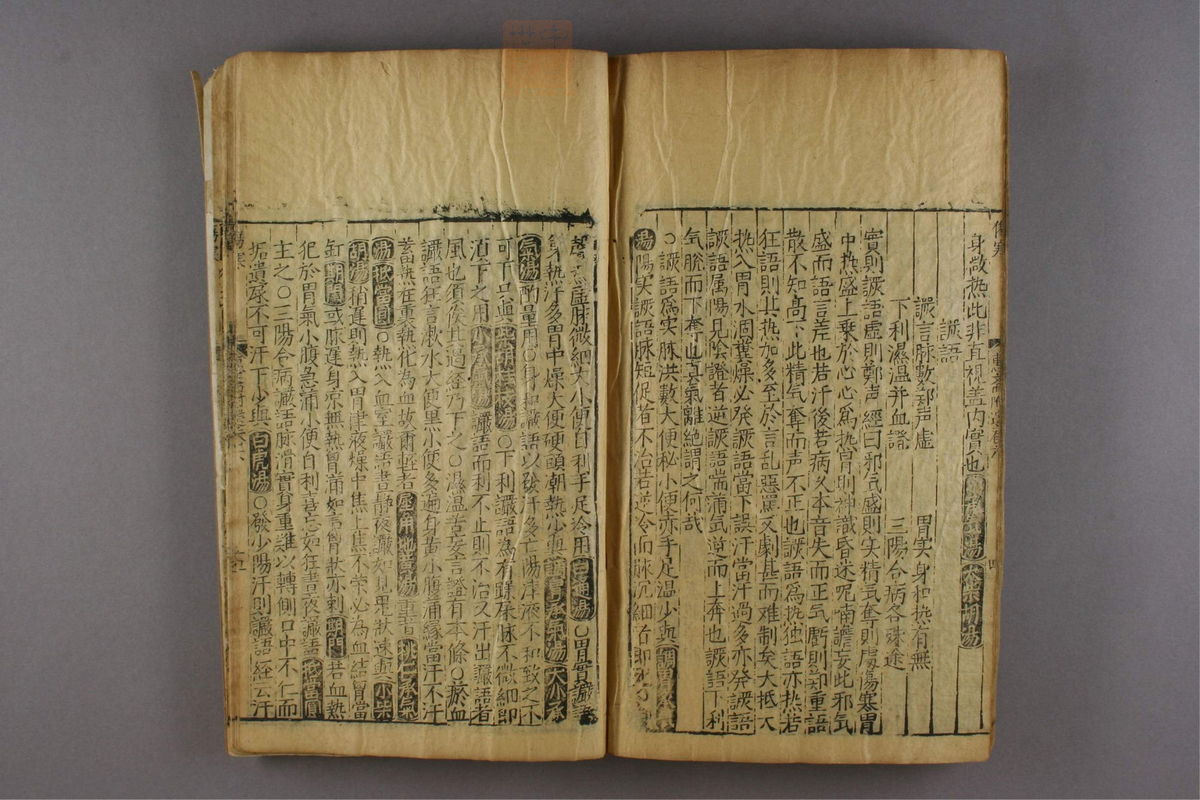 身微热此非直視盖内實也
譫語
譫言脉數鄭声虚 胃实身和热有無
下利濕温并血證 三陽合病各殊途
實則譫語虚則鄭声經曰邪気盛則实精気奪則虚傷寒胃
中热盛上乗於心心為热冒則神識昏迷呢喃譫妄此邪気
盛而語言差也若汗後若病久本音失而正気虧則知重語
散不知高下此精气奪而声不正也譫語為热独語亦热若
狂語則其热加多至於言乱惡罵又劇甚而难制矣大抵大
热入胃水涸糞燥必発譫語當下誤汗當汗過多亦発譫語
譫語属陽見陰證者逆譫語喘满気逆而上奔也譫語下利
気脱而下奪也真氣離絶謂之何哉
○譫語為实脉洪數大便秘小便赤手足温少與調胃承氣
湯陽实譫語脉短促者不治若逆冷而脉沉細者即死
虚脉微細大小便自利手足冷用白通湯○胃實譫語
身熱汗多胃中燥大便硬頭潮熱少與調胃承氣湯大小承
氣湯酌量用○身和譫語以發汗多亡陽津液不和致之不
可下且與柴胡桂枝湯○下利讝語為有躁屎脉不微細即
湏下之用小承氣湯讝語而利不止則不治又汗出讝語者
風也須俟其過經乃下之○濕温苦妄言證有本條○瘀血
讝語狂言漱水大便黒小便多遍身黄小腹满縁當汗不汗
蓄熱在裏熱化為血故爾輕者犀角地黄湯重者桃仁承氣
湯抵當圓○熱入血室讝語晝静夜讝如見鬼狀速與小柴
胡湯稍遲則熱入胃津液燥中焦上焦不栄必為血結胷當
刺期門或脉遲身凉無熱胷满如結胷狀亦刺期門若血熱
犯於胃氣小腹急满小便自利喜忘如狂晝夜讝語抵當圓
主之○三陽合病讝語脉滑實身重難以轉側口中不仁而
垢遺尿不可汗下少與白虎湯○發少陽汗則讝語經云汗